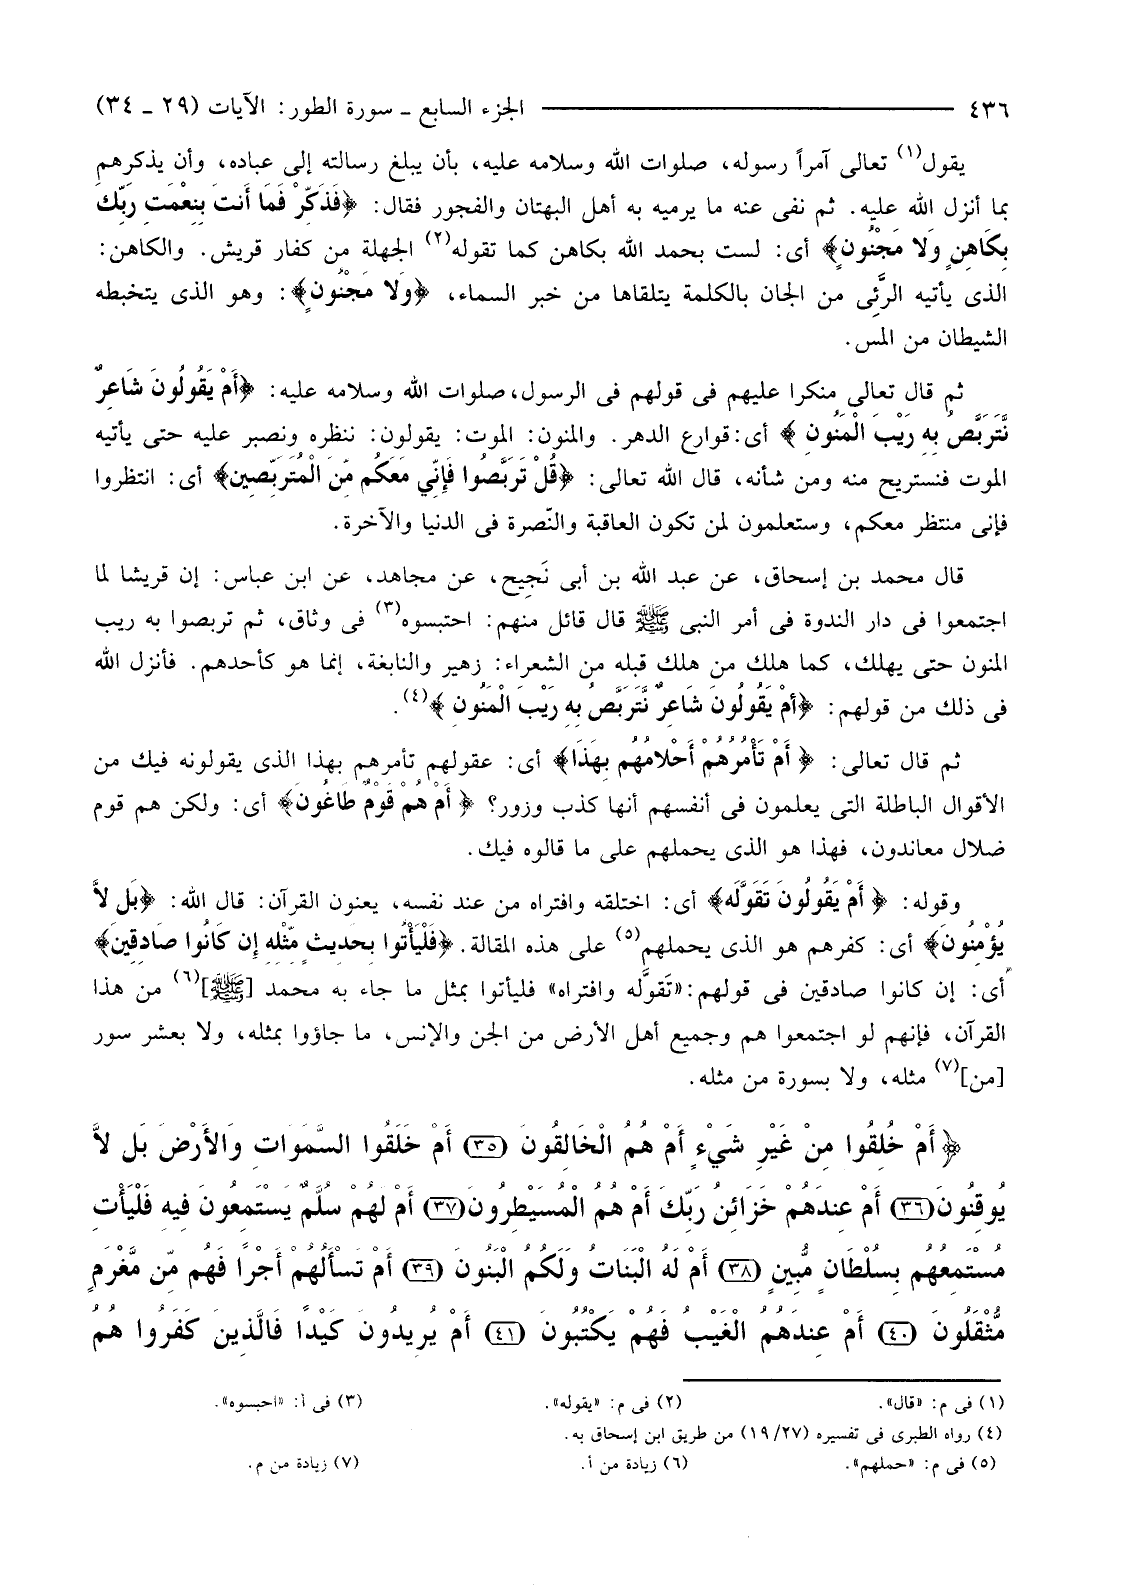 ٤٣٦ ــــــــــــ الجزء السابع ـ سورة الطور: الآيات (٢٩ ـ ٣٤)
يقول(١) تعالى آمراً رسوله، صلوات الله وسلامه عليه، بأن يبلغ رسالته إلى عباده، وأن يذكرهم
بما أنزل الله عليه. ثم نفى عنه ما يرميه به أهل البهتان والفجور فقال: ﴿فَذَكِّرْ فَمَا أَنتَ بِنِعْمَتِ رَبِّكَ
بِكَاهِنٍ وَلا مَجْنُونٍ﴾ أى: لست بحمد الله بكاهن كما تقوله(٢) الجهلة من كفار قريش. والكاهن:
الذى يأتيه الرَّئِى من الجان بالكلمة يتلقاها من خبر السماء، ﴿وَلا مَجْنُونٍ﴾: وهو الذى يتخبطه
الشيطان من المس.
ثم قال تعالى منكرا عليهم فى قولهم فى الرسول،صلوات الله وسلامه عليه: ﴿أَمْ يَقُولُونَ شَاعِرٌ
نَّتَرَبَّصُ بِهِ رَيْبَ الْمَنُونِ ﴾ أى:قوارع الدهر. والمنون: الموت: يقولون: ننظره ونصبر عليه حتى يأتيه
الموت فنستريح منه ومن شأنه، قال الله تعالى: ﴿قُلْ تَرَبَّصُوا فَإِنِّي مَعَكُم مِّنَ الْمُتَرَبِّصِين﴾ أى: انتظروا
فإنى منتظر معكم، وستعلمون لمن تكون العاقبة والنّصرة فى الدنيا والآخرة.
قال محمد بن إسحاق، عن عبد الله بن أبى نَجِيح، عن مجاهد، عن ابن عباس: إن قريشا لما
اجتمعوا فى دار الندوة فى أمر النبى ﷺ قال قائل منهم: احتبسوه(٣) فى وثاق، ثم تربصوا به ريب
المنون حتى يهلك، كما هلك من هلك قبله من الشعراء: زهير والنابغة، إنما هو كأحدهم. فأنزل الله
فى ذلك من قولهم: ﴿أَمْ يَقُولُونَ شَاعِرٌ نَّتَرَبَّصُ بِهِ رَيْبَ الْمَنُونِ ﴾(٤).
ثم قال تعالى: ﴿ أَمْ تَأْمُرُهُمْ أَحْلامُهُم بِهَذَا﴾ أى: عقولهم تأمرهم بهذا الذى يقولونه فيك من
الأقوال الباطلة التى يعلمون فى أنفسهم أنها كذب وزور؟ ﴿ أَمْ هُمْ قَوْمٌ طَاغُونَ﴾ أى: ولكن هم قوم
ضلال معاندون، فهذا هو الذى يحملهم على ما قالوه فيك.
وقوله: ﴿ أَمْ يَقُولُونَ تَقَوَّلَه﴾ أى: اختلقه وافتراه من عند نفسه، يعنون القرآن: قال الله: ﴿بَل لاَّ
يُؤْمِنُونَ﴾ أى: كفرهم هو الذى يحملهم(٥) على هذه المقالة. ﴿فَلْيَأْتُوا بِحَدِيثٍ مِّثْلِهِ إِن كَانُوا صَادِقِينَ﴾
أى: إن كانوا صادقين فى قولهم:«تَقوَّله وافتراه» فليأتوا بمثل ما جاء به محمد [ﷺ](٦) من هذا
القرآن، فإنهم لو اجتمعوا هم وجميع أهل الأرض من الجن والإنس، ما جاؤوا بمثله، ولا بعشر سور
[من](٧) مثله، ولا بسورة من مثله.
﴿ أَمْ خُلِقُوا مِنْ غَيْرِ شَيْءٍ أَمْ هُمُ الْخَالِقُونَ (٣٥) أَمْ خَلَقُوا السَّمَوَاتِ وَالأَرْضَ بَل لاَّ
يُوقِنُونَ (٣٦) أَمْ عِندَهُمْ خَزَائِنُ رَبِّكَ أَمْ هُمُ الْمُسَيْطِرُونَ (٣٧) أَمْ لَهُمْ سُلَّمٌ يَسْتَمِعُونَ فِيهِ فَلْيَأْتِ
مُسْتَمِعُهُم بِسُلْطَانٍ مُّبِينٍ (٣٨) أَمْ لَهُ الْبَنَاتُ وَلَكُمُ الْبَنُونَ (٣٩) أَمْ تَسْأَلُهُمْ أَجْرًا فَهُم مِّن مَّغْرَمٍ
مُّثْقَلُونَ (٤٠) أَمْ عِندَهُمُ الْغَيْبُ فَهُمْ يَكْتُبُونَ (٤١) أَمْ يُرِيدُونَ كَيْدًا فَالَّذِينَ كَفَرُوا هُمُ
(١) فى م: «قال». (٢) فى م: «يقوله». (٣) فى أ: «احبسوه».
(٤) رواه الطبرى فى تفسيره (١٩/٢٧) من طريق ابن إسحاق به.
(٥) فى م: «حملهم». (٦) زيادة من أ. (٧) زيادة من م.